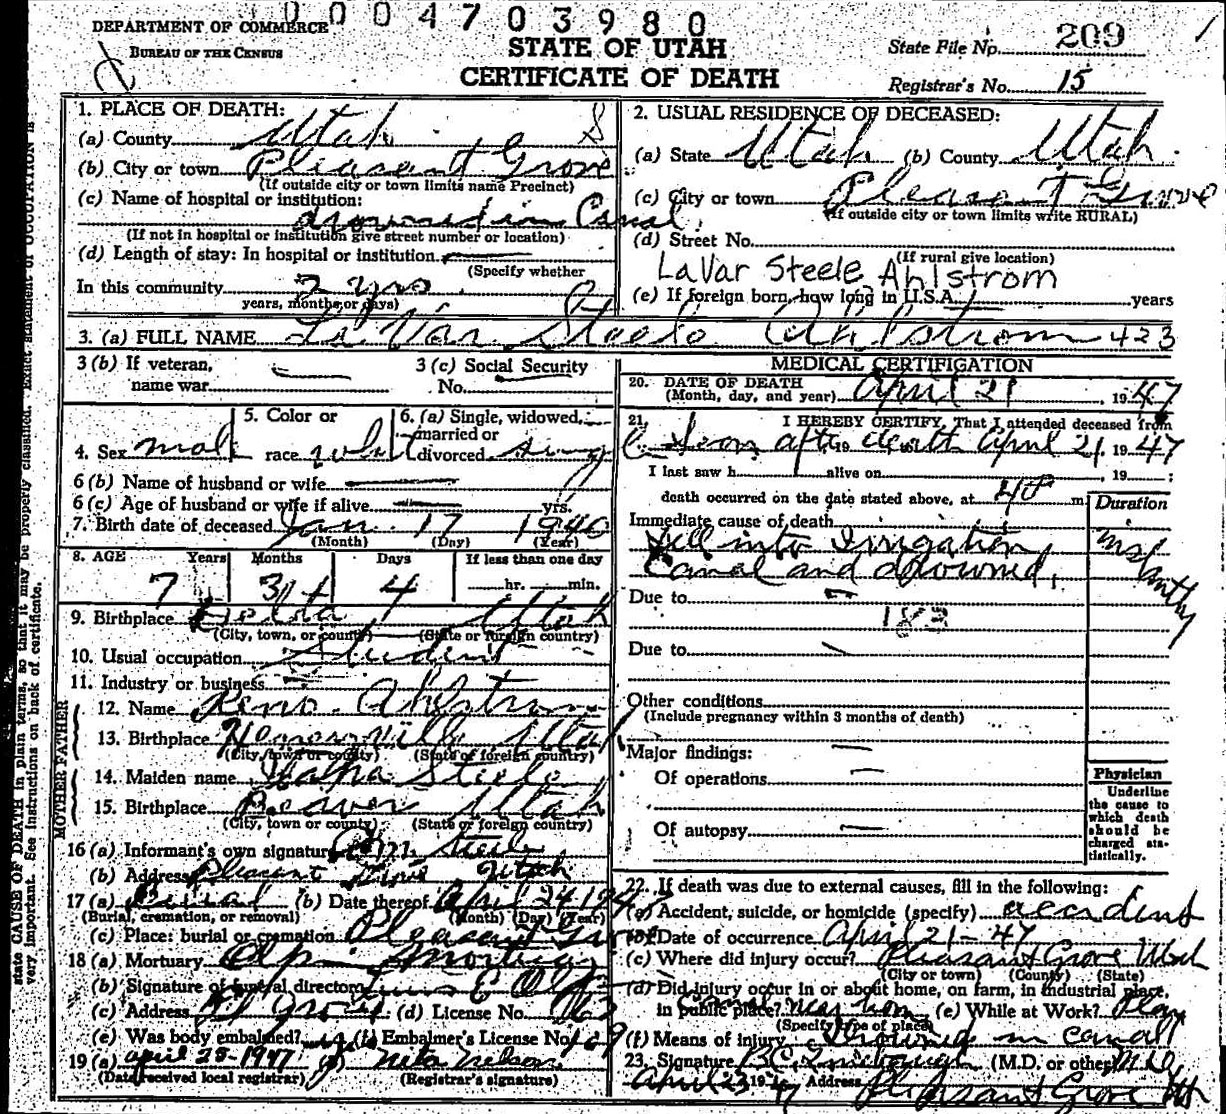 0004703980
DEPARTMENT OF COMMERCE
BUREAU OF THE CENSUS
STATE OF UTAH
CERTIFICATE OF DEATH
State File No. 209
Registrar's No. 15
1. PLACE OF DEATH:
(a) County Utah
(b) City or town Pleasant Grove
(If outside city or town limits name Precinct)
(c) Name of hospital or institution:
drowned in Canal
(If not in hospital or institution give street number or location)
(d) Length of stay: In hospital or institution
(Specify whether
In this community 2 yrs
years, months or days)
2. USUAL RESIDENCE OF DECEASED:
(a) State Utah (b) County Utah
(c) City or town Pleasant Grove
(If outside city or town limits write RURAL)
(d) Street No.
(If rural give location)
LaVar Steele Ahlstrom
(e) If foreign born, how long in U.S.A. years
3. (a) FULL NAME La Var Steele Ahlstrom 423
3 (b) If veteran,
name war
3 (c) Social Security
No.
4. Sex male
5. Color or
race white
6. (a) Single, widowed,
married or
divorced sing
6 (b) Name of husband or wife
6 (c) Age of husband or wife if alive yrs.
7. Birth date of deceased Jan. 17 1940
(Month) (Day) (Year)
8. AGE Years Months Days If less than one day
7 3 4 hr. min.
9. Birthplace Delta Utah
(City, town, or county) (State or foreign country)
10. Usual occupation Student
11. Industry or business
FATHER
12. Name Reno Ahlstrom
13. Birthplace Utah
(City, town or county) (State or foreign country)
MOTHER
14. Maiden name Steele
15. Birthplace Beaver Utah
(City, town or county) (State or foreign country)
16 (a) Informant's own signature Steele
(b) Address Pleasant Grove Utah
17 (a) Burial (b) Date thereof April 24 1947
(Burial, cremation, or removal) (Month) (Day) (Year)
(c) Place: burial or cremation Pleasant Grove
18 (a) Mortuary Olpin Mortuary
(b) Signature of funeral director
(c) Address Pl Grove (d) License No.
(e) Was body embalmed? (f) Embalmer's License No.
19 (a) april 25-1947 (b) Nelson
(Date received local registrar) (Registrar's signature)
MEDICAL CERTIFICATION
20. DATE OF DEATH
(Month, day, and year) April 21, 1947
21. I HEREBY CERTIFY, That I attended deceased from
after death April 21, 1947
I last saw h alive on , 19 ;
death occurred on the date stated above, at 4 P m
Duration
Immediate cause of death
Fell into Irrigation
Canal and drowned.
Due to
183
Due to
Other conditions
(Include pregnancy within 3 months of death)
Major findings:
Of operations
Of autopsy
Physician
Underline
the cause to
which death
should be
charged sta-
tistically.
22. If death was due to external causes, fill in the following:
(a) Accident, suicide, or homicide (specify) accident
(b) Date of occurrence April 21-47
(c) Where did injury occur? Pleasant Grove Utah
(City or town) (County) (State)
(d) Did injury occur in or about home, on farm, in industrial place,
in public place? Canal near home (e) While at Work? Play
(Specify type of place)
(f) Means of injury Drowned in canal
23. Signature (M.D. or other) M.D.
April 23 1947 Address Pleasant Grove Ut
state CAUSE OF DEATH in plain terms, so that it may be properly classified. Exact statement of OCCUPATION is
very important. See instructions on back of certificate.